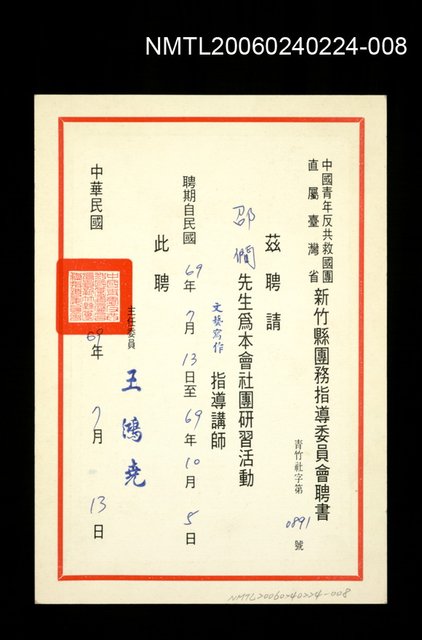 NMTL20060240224-008
中國青年反共救國團
直屬臺灣省
新竹縣團務指導委員會聘書
青竹社字第0891號
茲聘請
邵僩先生為本會社團研習活動
文藝寫作指導講師
聘期自民國69年7月13日至69年10月5日
此聘
主任委員
王鴻堯
中華民國69年7月13日
NMTL20060240224-008